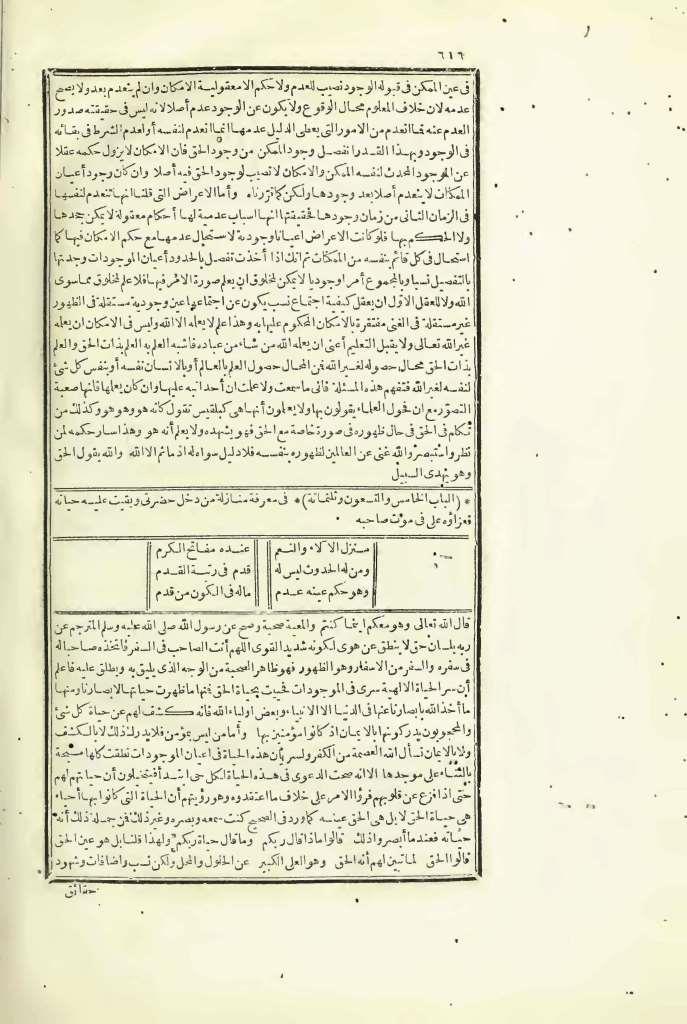 ٦١٦
فى عين الممكن فى قبوله الوجود نصيب للعدم ولا حكم الا معقولية الامكان وان لم ينعدم بعد ولا يصح
عدمه لان خلاف المعلوم محال الوقوع ولا يكون عن الوجود عدم أصلا لانه ليس فى حقيقته صدور
العدم عنه فما انعدم من الامور التى يعطى الدليل عدمها انما انعدم لنفسه أو لعدم الشرط فى بقائه
فى الوجود وبهذا القدر انفصل وجود الممكن من وجود الحق فان الامكان لا يزول حكمه عقلا
عن الموجود المحدث لنفسه الممكن والامكان لا نصيب لوجود الحق فيه أصلا وان كان وجود أعيان
الممكنات لا ينعدم أصلا بعد وجودها ولكن كما قررناه وأما الاعراض التى قلنا انها تنعدم لنفسها
فى الزمان الثانى من زمان وجودها فحقيقتها انها أسباب عدمية لها أحكام معقولة لا يمكن جحدها
ولا الحكم بها فلو كانت الاعراض أعيانا وجودية لاستحال عدمها مع حكم الامكان فيها كما
استحال فى كل قائم بنفسه من الممكنات ثم انك اذا أخذت تفصل بالحدود أعيان الموجودات وجدتها
بالتفصيل نسبا وبالمجموع أمرا وجوديا لا يمكن لمخلوق ان يعلم صورة الامر فيها فلا علم لمخلوق مما سوى
الله ولا للعقل الاول ان يعقل كيفية اجتماع نسب يكون عن اجتماعها عين وجودية مستقلة فى الظهور
غير مستقلة فى الغنى مفتقرة بالامكان المحكوم عليها به وهذا علم لا يعلمه الا الله وليس فى الامكان ان يعلمه
غير الله تعالى ولا يقبل التعليم أعنى ان يعلمه الله من شاء من عباده فأشبه العلم به العلم بذات الحق والعلم
بذات الحق محال حصوله لغير الله فمن المحال حصول العلم بالعالم أو بالانسان نفسه أو بنفس كل شئ
لنفسه لغير الله فتفهم هذه المسئلة فانى ما سمعت ولا علمت ان أحدا نبه عليها وان كان يعلمها فانها صعبة
التصور مع ان فحول العلماء يقولون بها ولا يعلمون أنها هى كبلقيس تقول كانه هو وهو هو وكذلك من
تكلم فى الحق فى حال ظهوره فى صورة خاصة مع الحق فهو يشهده ولا يعلم أنه هو وهذا سار حكمه لمن
نظر واستبصر والله غنى عن العالمين لظهوره بنفسه فلا دليل سواه له اذ ما ثم الا الله والله يقول الحق
وهو يهدى السبيل
* (الباب الخامس والتسعون وثلثمائة) * فى معرفة منازلة من دخل حضرتى وبقيت عليه حياته
فعزاؤه على فى موت صاحبه
منزل الآلاء والنعم عنده مفاتح الكرم
ومن له الحدوث ليس له قدم فى رتبة القدم
وهو حكم عينه عدم ماله فى الكون من قدم
قال الله تعالى وهو معكم اينما كنتم والمعية صحبة وصح عن رسول الله صلى الله عليه وسلم المترجم عن
ربه بلسان حق لا ينطق عن هوى لكونه شديد القوى اللهم أنت الصاحب فى السفر فاتخذه صاحباله
فى سفره والسفر من الاسفار وهو الظهور فهو ظاهر الصحبة من الوجه الذى يليق به ويطلق عليه فاعلم
أن سر الحياة الالهية سرى فى الموجودات فحييت بحياة الحق فمنها ما ظهرت حياتها لابصارنا ومنها
ما أخذ الله بابصارنا عنها فى الدنيا الا الانبياء وبعض اولياء الله فانه كشف لهم عن حياة كل شئ
والمحجوبون يدركونها بالايمان اذ كانوا مؤمنين بها وأما من ليس بمؤمن فلا يدرك ذلك لا بالكشف
ولا بالايمان نسأل الله العصمة من الكفر ولسريان هذه الحياة فى اعيان الموجودات نطقت كلها مسبحة
بالثناء على موجدها الا انه صحت الدعوى فى هذه الحياة لكل حى فيتخيلون أن حياتهم لهم
حتى اذا فزع عن قلوبهم فرأوا الامر على خلاف ما اعتقدوه وهو رؤيتهم أن الحياة التى كانوا بها أحياء
هى حياة الحق لا بل هى الحق عينه كما ورد فى الصحيح كنت سمعه وبصره وغير ذلك فمن جملة ذلك أنه
حياته فعندما أبصروا ذلك قالوا ماذا قال ربكم وما قال حياة ربكم ولهذا قلنا بل هو عين الحق
قالوا الحق لما تبين لهم أنه الحق وهو العلى الكبير عن الحلول والمحل ولكن نسب واضافات وشهود
حقائق